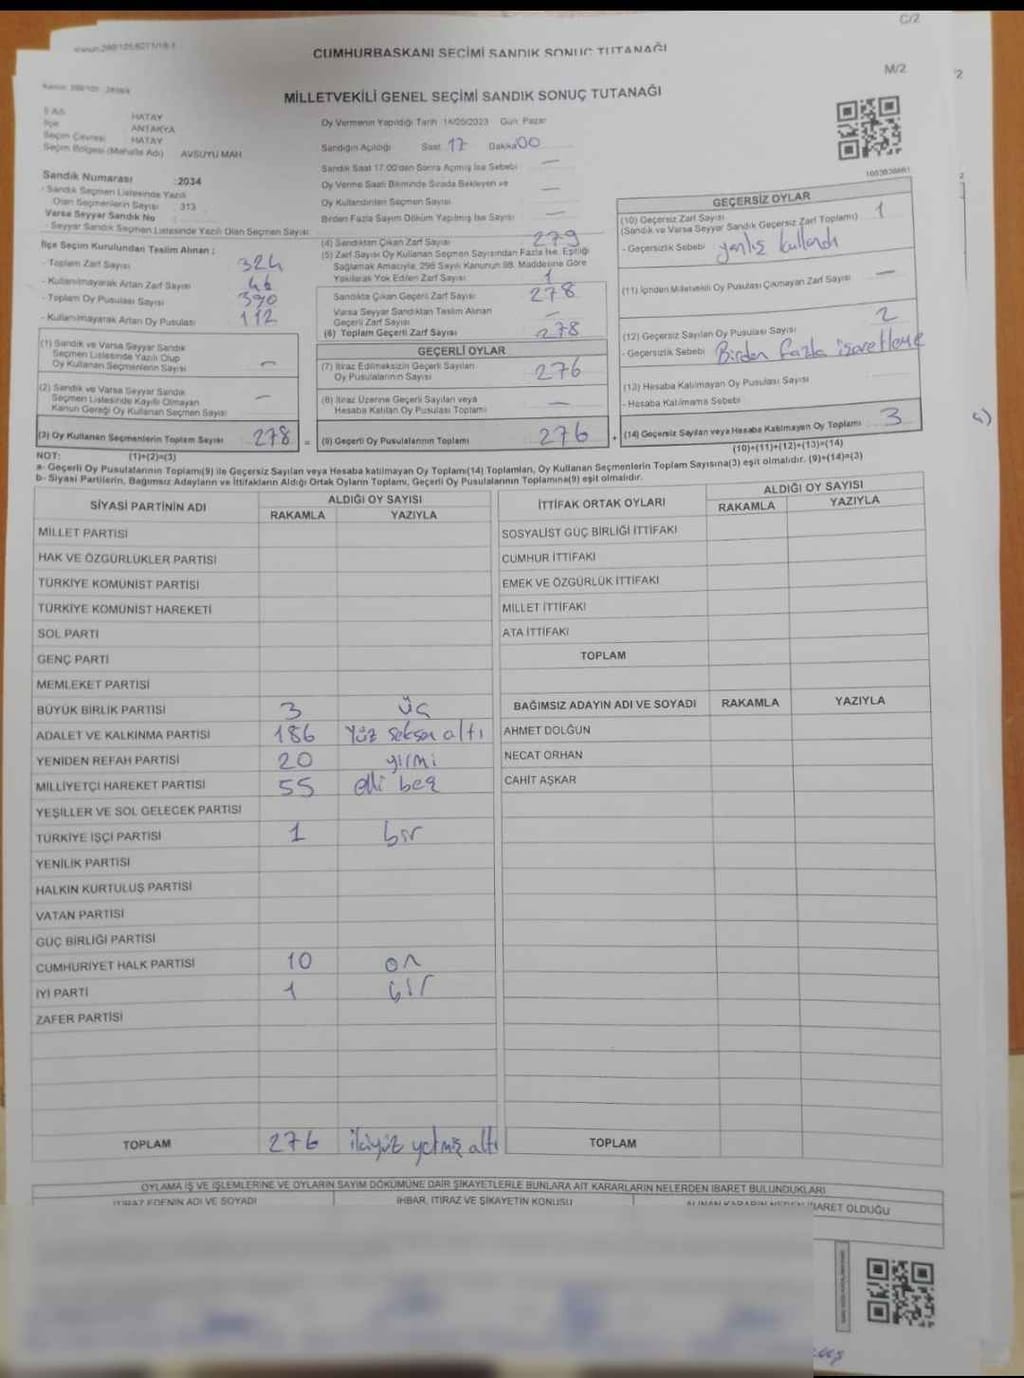 C/2
CUMHURBAŞKANI SEÇİMİ SANDIK SONUÇ TUTANAĞI
M/2
2
MİLLETVEKİLİ GENEL SEÇİMİ SANDIK SONUÇ TUTANAĞI
HATAY
İlçe ANTAKYA
Seçim Çevresi HATAY
Seçim Bölgesi (Mahalle Adı) AVSUYU MAH
Sandık Numarası : 2034
- Sandık Seçmen Listesinde Yazılı
Olan Seçmenlerin Sayısı : 313
Varsa Seyyar Sandık No
- Seyyar Sandık Seçmen Listesinde Yazılı Olan Seçmen Sayısı:
İlçe Seçim Kurulundan Teslim Alınan :
- Toplam Zarf Sayısı 324
- Kullanılmayarak Artan Zarf Sayısı 46
- Toplam Oy Pusulası Sayısı 390
- Kullanılmayarak Artan Oy Pusulası 112
(1) Sandık ve Varsa Seyyar Sandık
Seçmen Listesinde Yazılı Olup
Oy Kullanan Seçmenlerin Sayısı —
(2) Sandık ve Varsa Seyyar Sandık
Seçmen Listesinde Kayıtlı Olmayan
Kanun Gereği Oy Kullanan Seçmen Sayısı —
(3) Oy Kullanan Seçmenlerin Toplam Sayısı 278 =
Oy Vermenin Yapıldığı Tarih 14/05/2023 Gün Pazar
Sandığın Açıldığı Saat 17 Dakika 00
Sandık Saat 17:00'den Sonra Açmış İse Sebebi —
Oy Verme Saati Bitiminde Sırada Bekleyen ve
Oy Kullandırılan Seçmen Sayısı —
Birden Fazla Sayım Döküm Yapılmış İse Sayısı —
(4) Sandıktan Çıkan Zarf Sayısı 279
(5) Zarf Sayısı Oy Kullanan Seçmen Sayısından Fazla İse, Eşitliği
Sağlamak Amacıyla, 298 Sayılı Kanunun 98. Maddesine Göre
Yakılarak Yok Edilen Zarf Sayısı 1
Sandıkta Çıkan Geçerli Zarf Sayısı 278
Varsa Seyyar Sandıktan Teslim Alınan
Geçerli Zarf Sayısı —
(6) Toplam Geçerli Zarf Sayısı 278
GEÇERLİ OYLAR
(7) İtiraz Edilmeksizin Geçerli Sayılan
Oy Pusulalarının Sayısı 276
(8) İtiraz Üzerine Geçerli Sayılan veya
Hesaba Katılan Oy Pusulası Toplamı —
(9) Geçerli Oy Pusulalarının Toplamı 276 +
GEÇERSİZ OYLAR
(10) Geçersiz Zarf Sayısı
(Sandık ve Varsa Seyyar Sandık Geçersiz Zarf Toplamı) 1
- Geçersizlik Sebebi yanlış kullandı
(11) İçinden Milletvekili Oy Pusulası Çıkmayan Zarf Sayısı —
(12) Geçersiz Sayılan Oy Pusulası Sayısı 2
- Geçersizlik Sebebi Birden fazla işaretleme
(13) Hesaba Katılmayan Oy Pusulası Sayısı
- Hesaba Katılmama Sebebi
(14) Geçersiz Sayılan veya Hesaba Katılmayan Oy Toplamı 3
NOT: (1)+(2)=(3)
(10)+(11)+(12)+(13)=(14)
a- Geçerli Oy Pusulalarının Toplamı(9) ile Geçersiz Sayılan veya Hesaba katılmayan Oy Toplamı(14) Toplamları, Oy Kullanan Seçmenlerin Toplam Sayısına(3) eşit olmalıdır. (9)+(14)=(3)
b- Siyasi Partilerin, Bağımsız Adayların ve İttifakların Aldığı Ortak Oyların Toplamı, Geçerli Oy Pusulalarının Toplamına(9) eşit olmalıdır.
SİYASİ PARTİNİN ADI ALDIĞI OY SAYISI
RAKAMLA YAZIYLA
MİLLET PARTİSİ
HAK VE ÖZGÜRLÜKLER PARTİSİ
TÜRKİYE KOMÜNİST PARTİSİ
TÜRKİYE KOMÜNİST HAREKETİ
SOL PARTİ
GENÇ PARTİ
MEMLEKET PARTİSİ
BÜYÜK BİRLİK PARTİSİ 3 üç
ADALET VE KALKINMA PARTİSİ 186 Yüz seksen altı
YENİDEN REFAH PARTİSİ 20 yirmi
MİLLİYETÇİ HAREKET PARTİSİ 55 elli beş
YEŞİLLER VE SOL GELECEK PARTİSİ
TÜRKİYE İŞÇİ PARTİSİ 1 bir
YENİLİK PARTİSİ
HALKIN KURTULUŞ PARTİSİ
VATAN PARTİSİ
GÜÇ BİRLİĞİ PARTİSİ
CUMHURİYET HALK PARTİSİ 10 on
İYİ PARTİ 1 bir
ZAFER PARTİSİ
TOPLAM 276 ikiyüz yetmiş altı
İTTİFAK ORTAK OYLARI ALDIĞI OY SAYISI
RAKAMLA YAZIYLA
SOSYALİST GÜÇ BİRLİĞİ İTTİFAKI
CUMHUR İTTİFAKI
EMEK VE ÖZGÜRLÜK İTTİFAKI
MİLLET İTTİFAKI
ATA İTTİFAKI
TOPLAM
BAĞIMSIZ ADAYIN ADI VE SOYADI RAKAMLA YAZIYLA
AHMET DOLĞUN
NECAT ORHAN
CAHİT AŞKAR
TOPLAM
OYLAMA İŞ VE İŞLEMLERİNE VE OYLARIN SAYIM DÖKÜMÜNE DAİR ŞİKAYETLERLE BUNLARA AİT KARARLARIN NELERDEN İBARET BULUNDUKLARI
İTİRAZ EDENİN ADI VE SOYADI İHBAR, İTİRAZ VE ŞİKAYETİN KONUSU ALINAN KARARIN NEDEN İBARET OLDUĞU